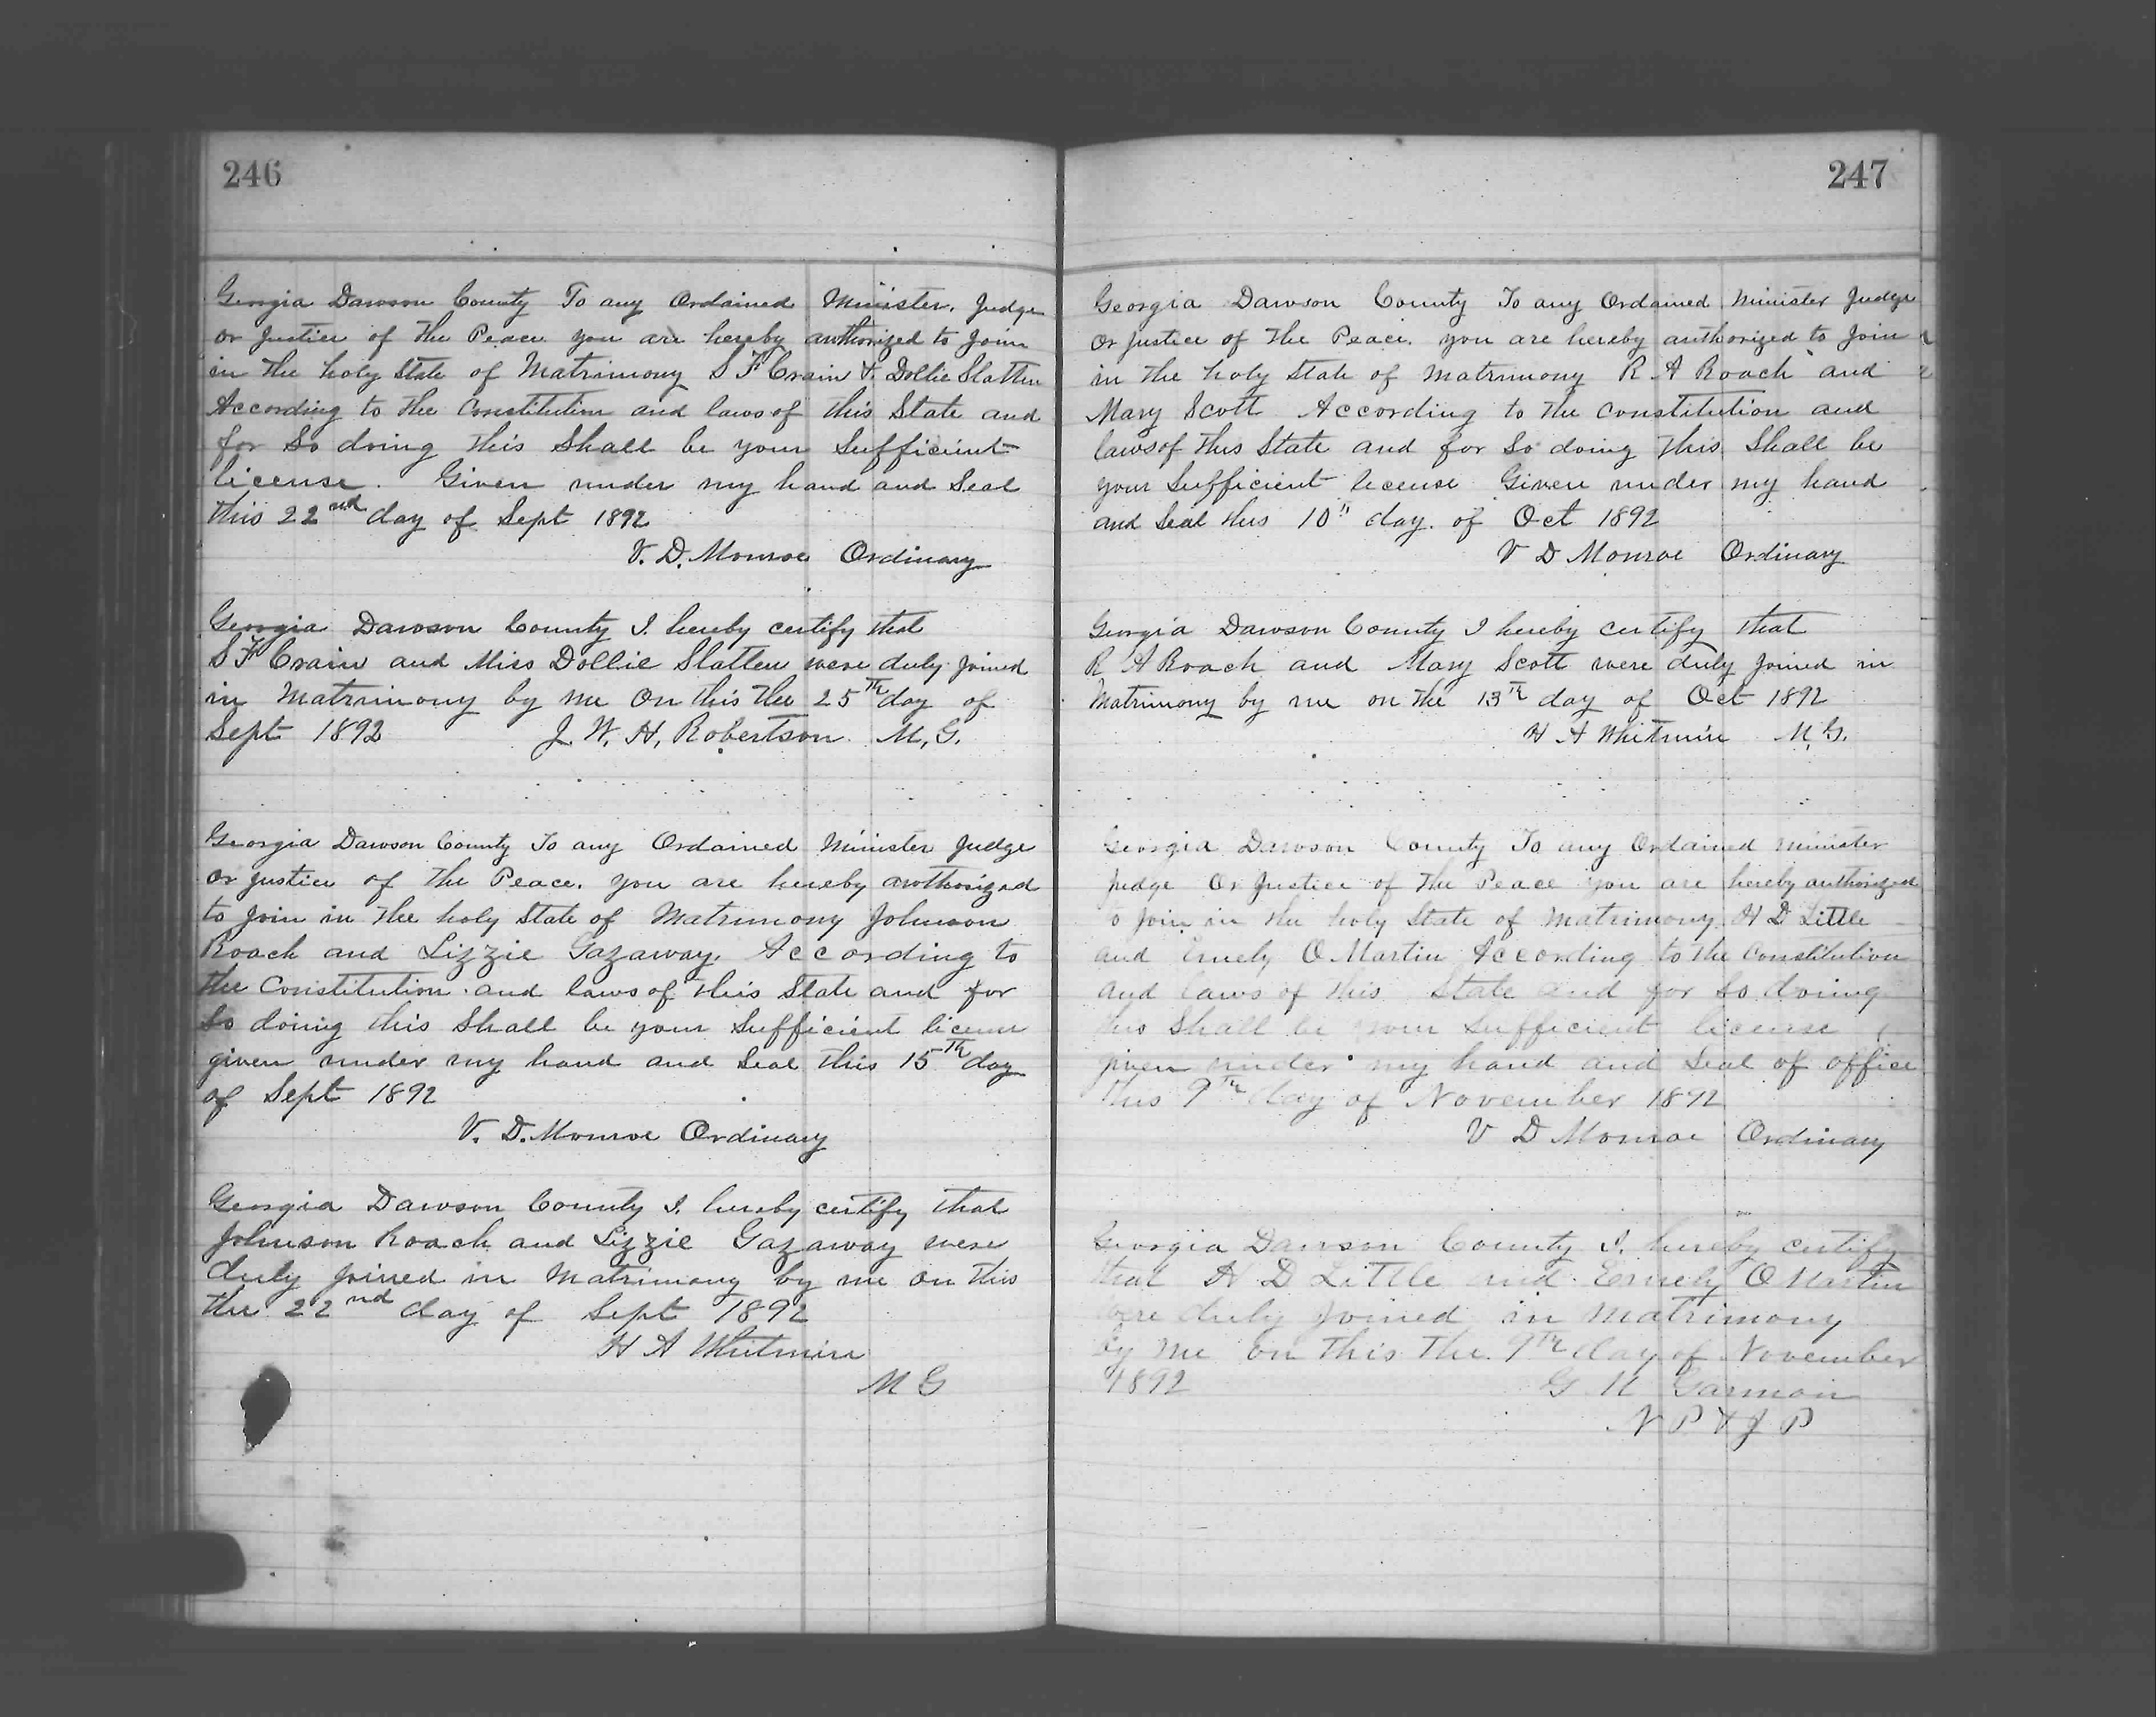 246
Georgia Dawson County To any Ordained Minister. Judge
or Justice of the Peace you are hereby authorized to join
in the holy State of Matrimony S F Crain & Dollie Slatten
According to the Constitution and laws of this State and
for So doing this Shall be your Sufficient
license. Given under my hand and Seal
this 22nd day of Sept 1892
V. D. Monroe Ordinary
Georgia Dawson County I. hereby certify that
S F Crain and Miss Dollie Slatten were duly joined
in Matrimony by me on this the 25th day of
Sept 1892 J. W. H. Robertson. M. G.
Georgia Dawson County To any Ordained Minister Judge
or Justice of the Peace. you are hereby authorized
to join in the holy State of Matrimony Johnson
Roach and Lizzie Gazaway. According to
the Constitution and laws of this State and for
So doing this Shall be your Sufficient license
given under my hand and Seal this 15th day
of Sept 1892
V. D. Monroe Ordinary
Georgia Dawson County I. hereby certify that
Johnson Roach and Lizzie Gazaway were
duly joined in Matrimony by me on this
the 22nd day of Sept 1892
H A Whitmire
M G
247
Georgia Dawson County To any Ordained Minister Judge
or Justice of the Peace. you are hereby authorized to join
in the holy State of Matrimony R A Roach and
Mary Scott According to the Constitution and
laws of this State and for So doing this Shall be
your Sufficient license Given under my hand
and Seal this 10" day of Oct 1892
V D Monroe Ordinary
Georgia Dawson County I hereby certify that
R A Roach and Mary Scott were duly joined in
Matrimony by me on the 13th day of Oct 1892
H A Whitmire M. G.
Georgia Dawson County To any Ordained minister
Judge Or Justice of the Peace you are hereby authorized
to join in the holy State of Matrimony H D Little
and Emely O Martin According to the Constitution
and laws of this State and for So doing
this Shall be your Sufficient license
given under my hand and Seal of office
this 9th day of November 1892
V D Monroe Ordinary
Georgia Dawson County I. hereby certify
that H D Little and Emely O Martin
were duly joined in Matrimony
by me on this the 9th day of November
1892 G M Garmon
N P & J P